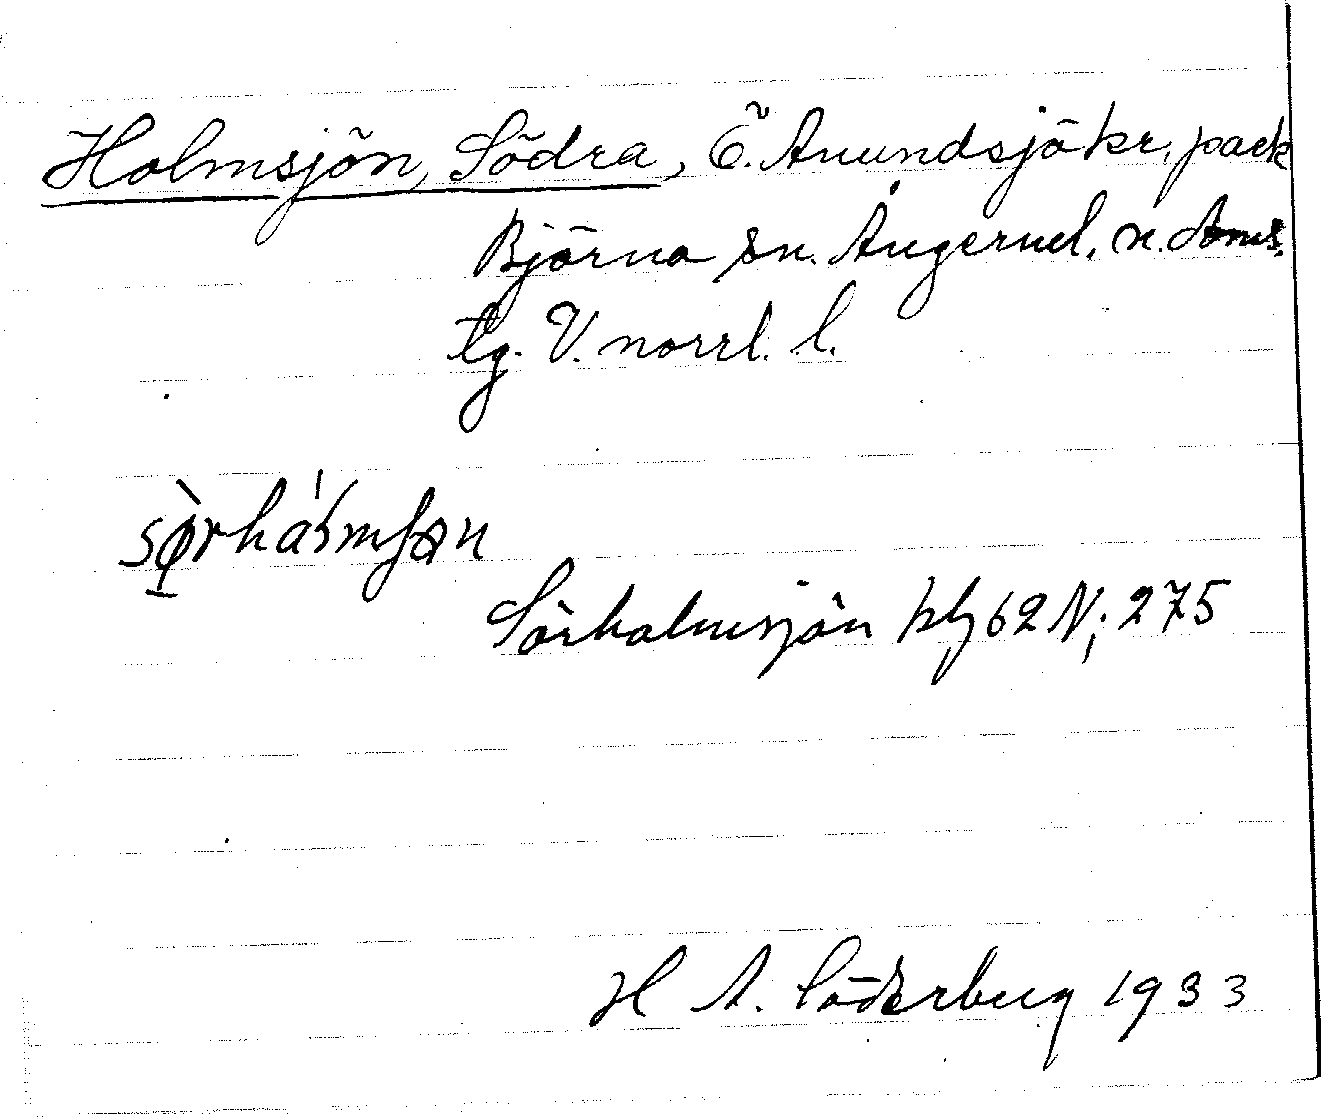 Holmsjön, Södra, Ö. Anundsjö kr. pack
Björna sn. Ångerml. n. doms.
tg. V. norrl. l.
sø̀rhálmʃøn
Sörholmsjön kbl 62 N; 275
H A. Söderberg 1933